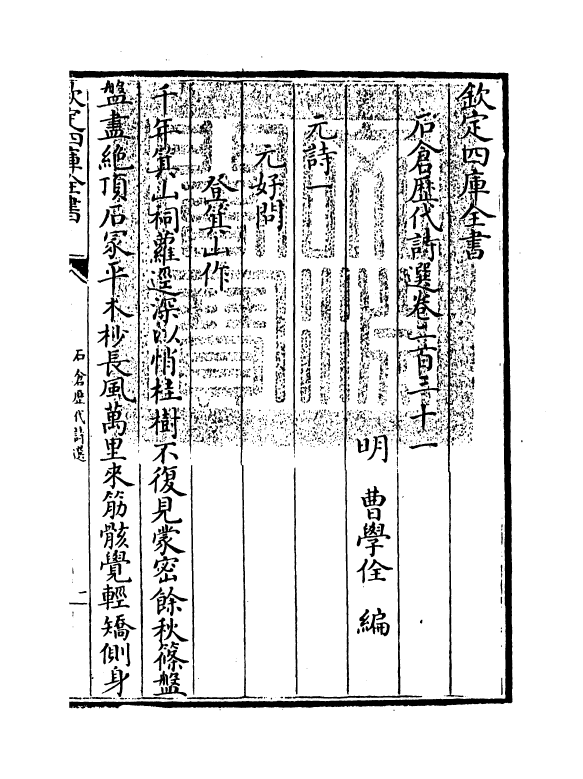 欽定四庫全書
石倉歷代詩選卷二百三十一
明 曹學佺 編
元詩一
元好問
登箕山作
千年箕山祠蘿逕深以悄桂樹不復見蒙密餘秋篠盤
盤盡絶頂石冢平木杪長風萬里來筋骸覺輕矯側身
欽定四庫全書
石倉歷代詩選